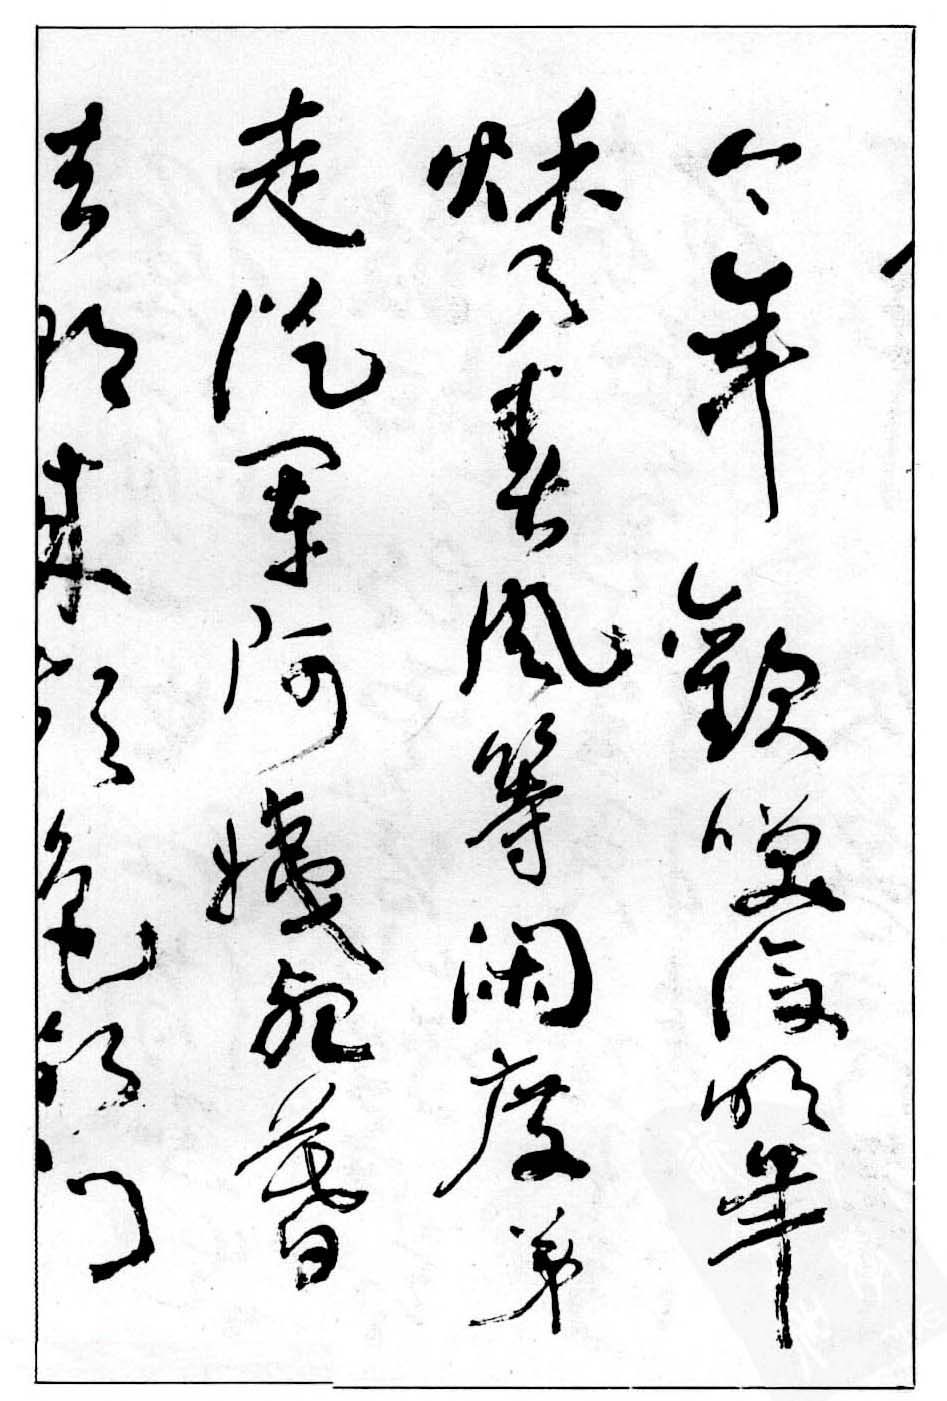 今年歡笑復明年
秋月春風等閑度弟
走從軍阿姨死暮
去朝來顏色故門